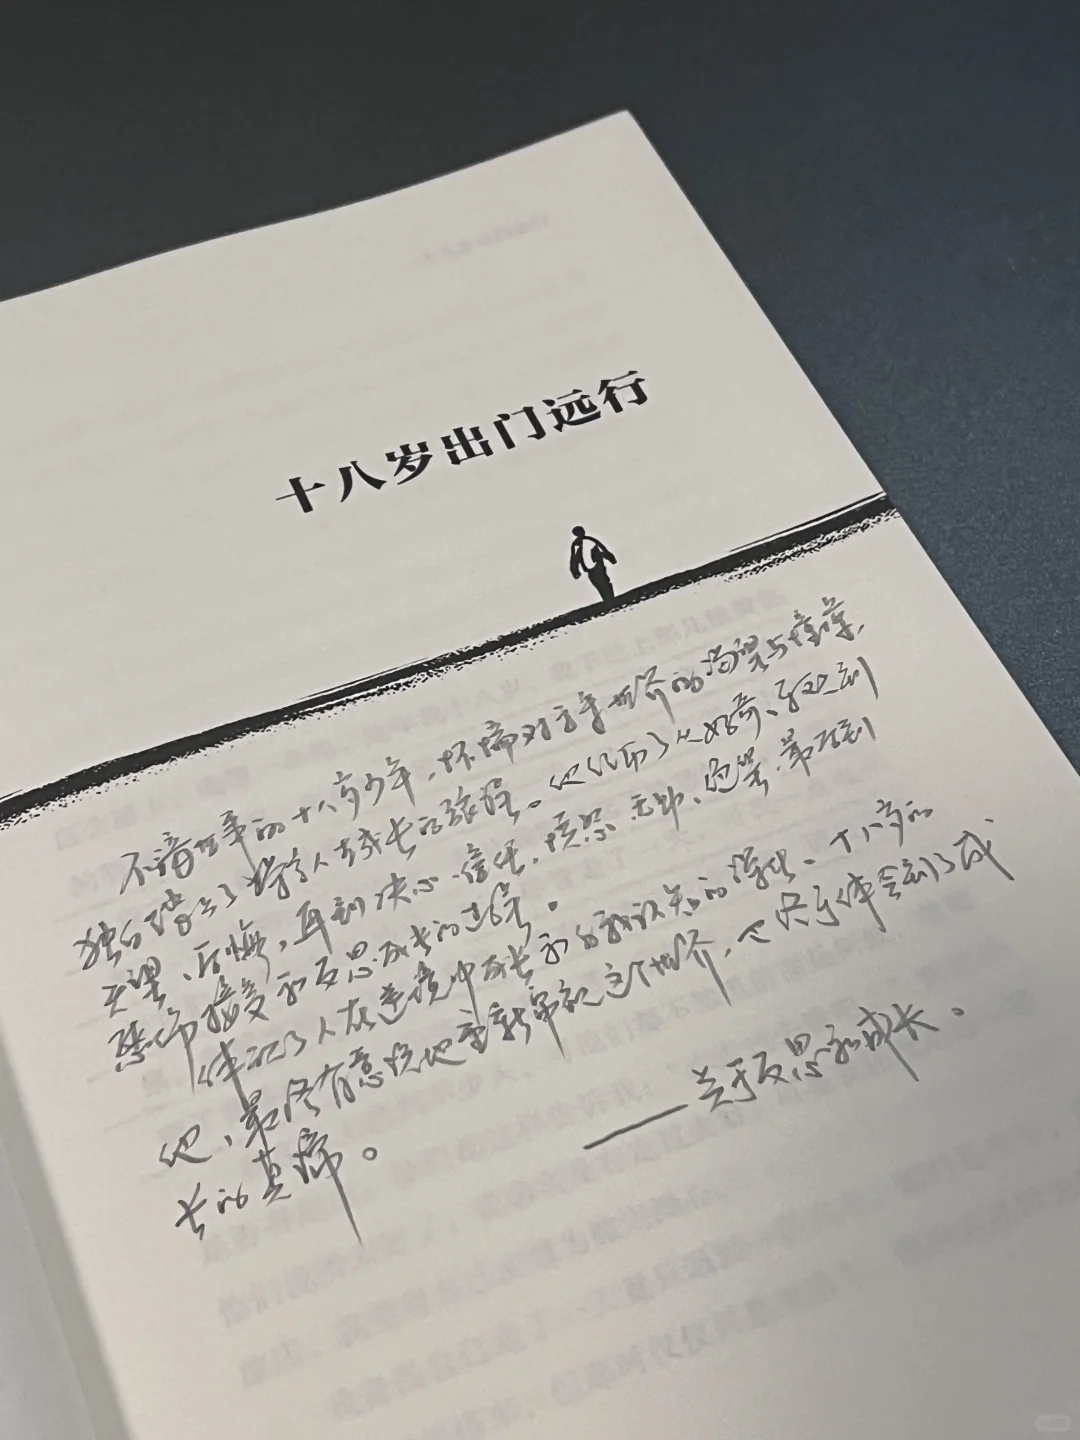 十八岁出门远行
不谙世事的十八岁少年，怀揣对世界的渴望与憧憬，
独自踏上了将名人去成长的旅程。他经历了从好奇、到
失望、后悔，再到决心、信任、愤怒、无助、绝望、最后到
悲伤接受和反思成长的过程。
体现了人在逆境中成长和自我认知的深化。十八岁的
他，最终有意识地重新审视这个世界，也终于体会到了成
长的真谛。
——关于反思和成长。